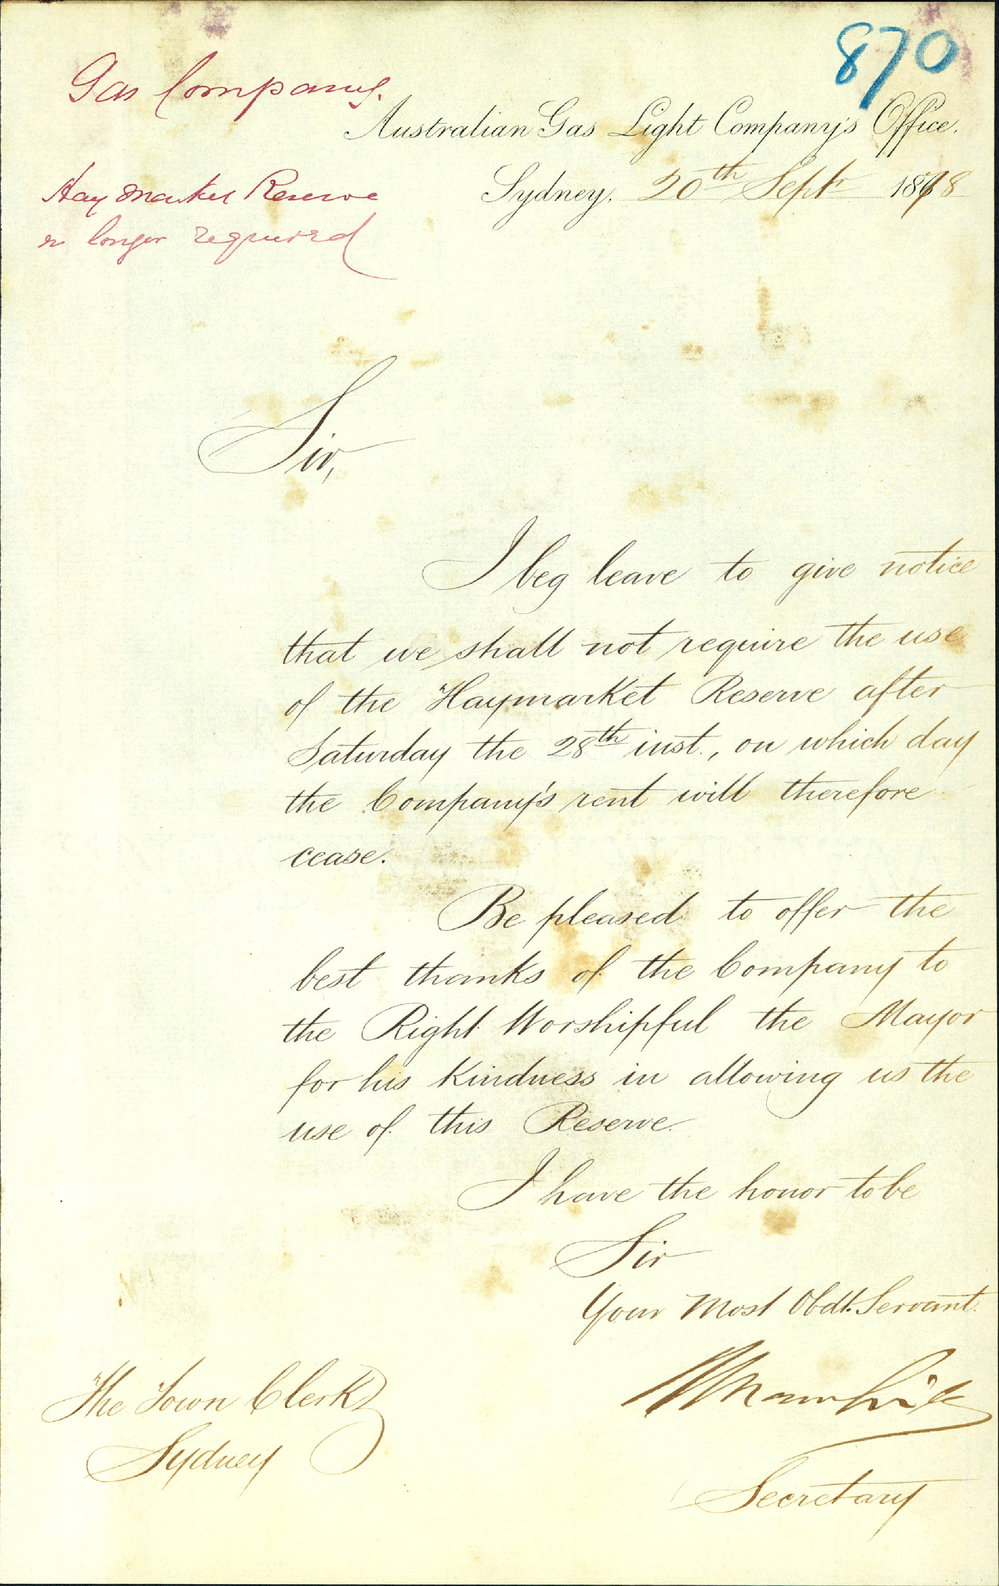 870
Gas Company.
Australian Gas Light Company's Office.
Haymarket Reserve
no longer required
Sydney. 20th Sept 1878
Sir,
I beg leave to give notice
that we shall not require the use
of the Haymarket Reserve after
Saturday the 28th inst., on which day
the Company's rent will therefore
cease.
Be pleased to offer the
best thanks of the Company to
the Right Worshipful the Mayor
for his kindness in allowing us the
use of this Reserve.
I have the honor to be
Sir
Your Most Obdt. Servant.
The Town Clerk
Sydney
Secretary